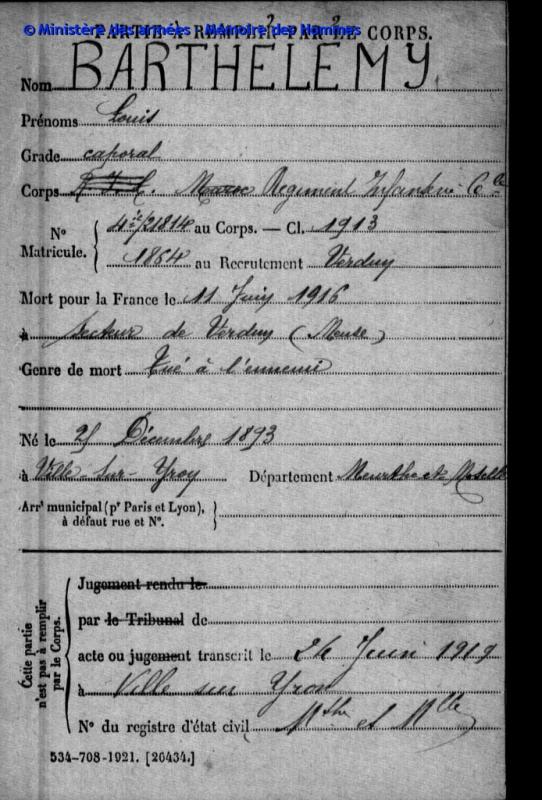 © Ministère des armées - Mémoire des Hommes
PARTIE À REMPLIR PAR LE CORPS.
Nom BARTHELEMY
Prénoms Louis
Grade caporal
Corps R. I. C. Maroc Régiment Infanterie Cle
No Matricule. { au Corps. — Cl. 1913
1864 au Recrutement Verdun
Mort pour la France le 11 Juin 1916
à secteur de Verdun (Meuse)
Genre de mort Tué à l'ennemi
Né le Décembre 1893
à Ville-sur-Yron Département Meurthe et Moselle
Arrt municipal (pr Paris et Lyon), }
à défaut rue et No.
Cette partie n'est pas à remplir par le Corps.
Jugement rendu le
par le Tribunal de
acte ou jugement transcrit le 24 Juin 1919
à Ville sur Yron
No du registre d'état civil Mthe et Mlle
534-708-1921. [26434.]